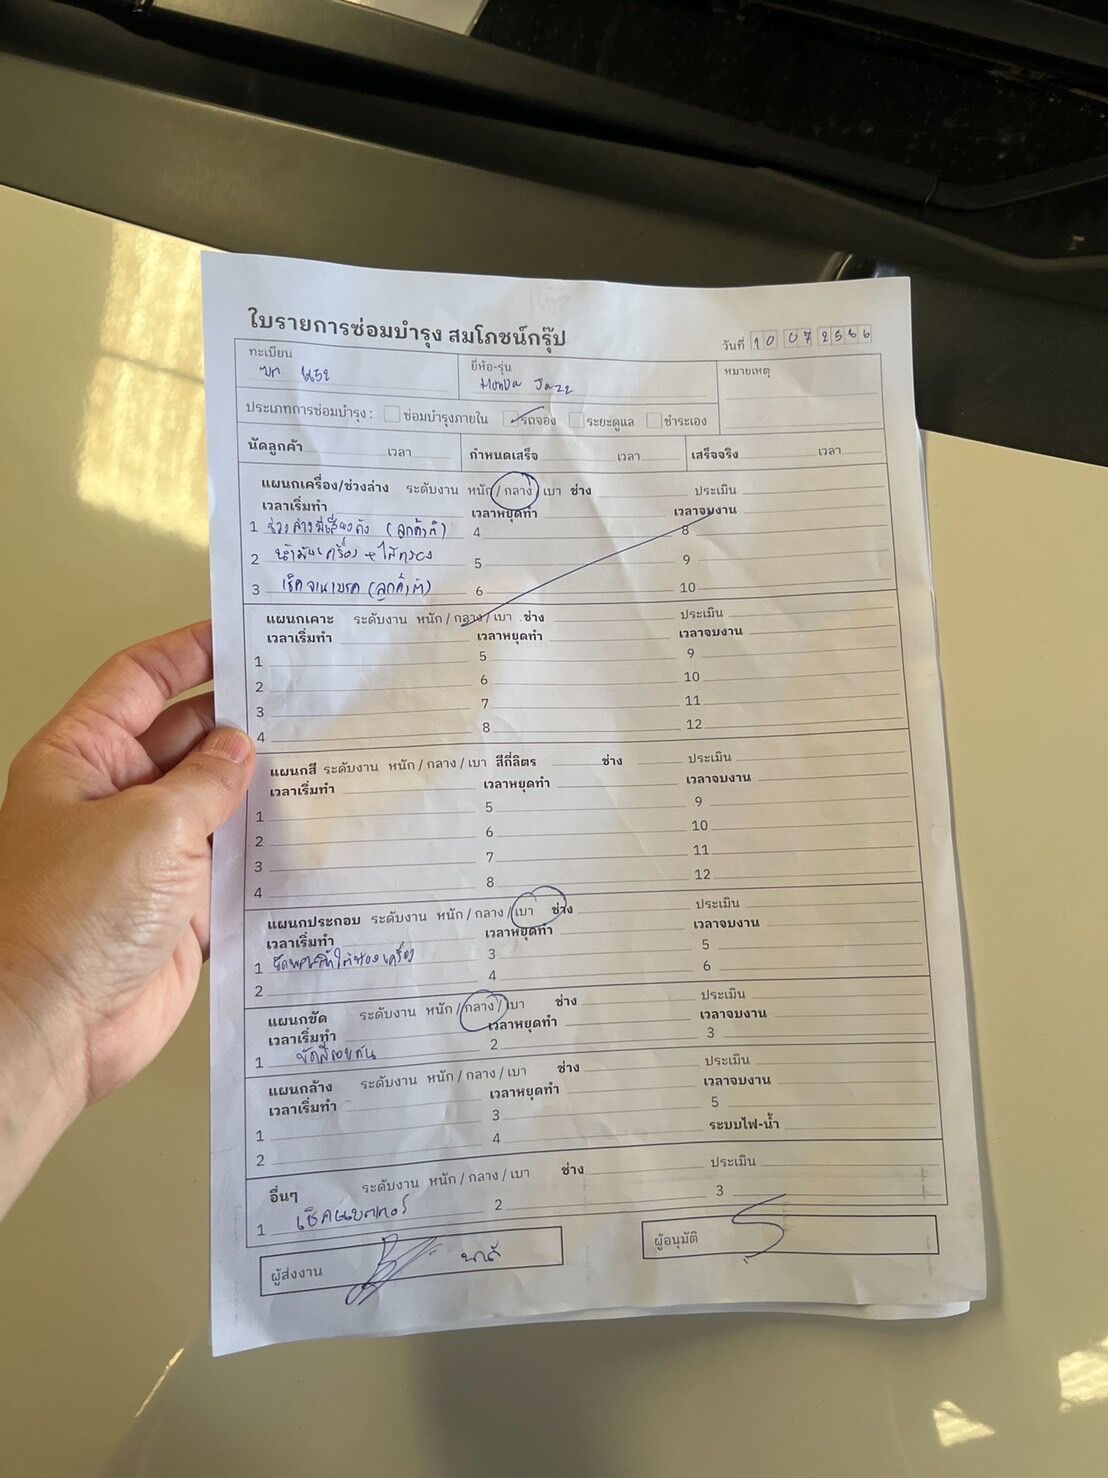 ใบรายการซ่อมบำรุง สมโภชน์กรุ๊ป
วันที่ 10 07 2566
ทะเบียน
ยี่ห้อ-รุ่น
หมายเหตุ
Honda Jazz
ประเภทการซ่อมบำรุง : ซ่อมบำรุงภายใน รถจอง ระยะดูแล ชำระเอง
นัดลูกค้า เวลา กำหนดเสร็จ เวลา เสร็จจริง เวลา
แผนกเครื่อง/ช่วงล่าง ระดับงาน หนัก / กลาง / เบา ช่าง ประเมิน
เวลาเริ่มทำ เวลาหยุดทำ เวลาจบงาน
1 ช่วงล่างมีเสียงดัง 4 8
2 น้ำมันเครื่อง + ไส้กรอง 5 9
3 เช็คจานเบรค 6 10
แผนกเคาะ ระดับงาน หนัก / กลาง / เบา ช่าง ประเมิน
เวลาเริ่มทำ เวลาหยุดทำ เวลาจบงาน
1 5 9
2 6 10
3 7 11
4 8 12
แผนกสี ระดับงาน หนัก / กลาง / เบา สีกี่ลิตร ช่าง ประเมิน
เวลาเริ่มทำ เวลาหยุดทำ เวลาจบงาน
1 5 9
2 6 10
3 7 11
4 8 12
แผนกประกอบ ระดับงาน หนัก / กลาง / เบา ช่าง ประเมิน
เวลาเริ่มทำ เวลาหยุดทำ เวลาจบงาน
1 3 5
2 4 6
แผนกขัด ระดับงาน หนัก / กลาง / เบา ช่าง ประเมิน
เวลาเริ่มทำ เวลาหยุดทำ เวลาจบงาน
1 ขัดสีรอบคัน 2 3
แผนกล้าง ระดับงาน หนัก / กลาง / เบา ช่าง ประเมิน
เวลาเริ่มทำ เวลาหยุดทำ เวลาจบงาน
1 3 5
2 4 ระบบไฟ-น้ำ
อื่นๆ ระดับงาน หนัก / กลาง / เบา ช่าง ประเมิน
1 เช็คแบตเตอร์ 2 3
ผู้ส่งงาน
ผู้อนุมัติ